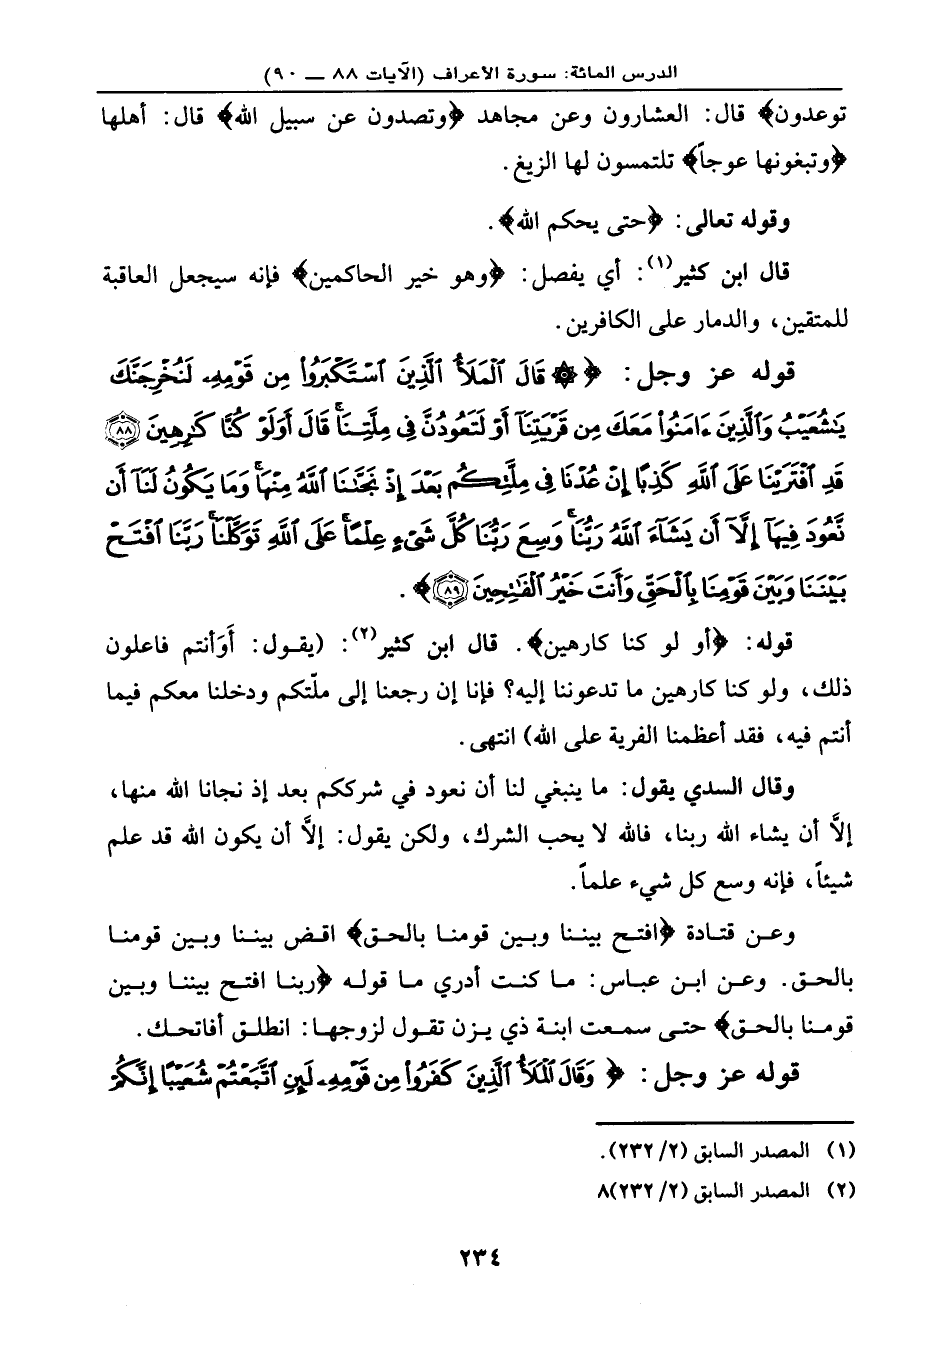 الدرس المائة: سورة الأعراف (الآيات ٨٨ — ٩٠)
توعدون﴾ قال: العشارون وعن مجاهد ﴿وتصدون عن سبيل الله﴾ قال: أهلها
﴿وتبغونها عوجاً﴾ تلتمسون لها الزيغ.
وقوله تعالى: ﴿حتى يحكم الله﴾.
قال ابن كثير(١): أي يفصل: ﴿وهو خير الحاكمين﴾ فإنه سيجعل العاقبة
للمتقين، والدمار على الكافرين.
قوله عز وجل: ﴿ ۞ قَالَ ٱلْمَلَأُ ٱلَّذِينَ ٱسْتَكْبَرُوا۟ مِن قَوْمِهِۦ لَنُخْرِجَنَّكَ
يَٰشُعَيْبُ وَٱلَّذِينَ ءَامَنُوا۟ مَعَكَ مِن قَرْيَتِنَآ أَوْ لَتَعُودُنَّ فِى مِلَّتِنَا ۚ قَالَ أَوَلَوْ كُنَّا كَٰرِهِينَ ﴿٨٨﴾
قَدِ ٱفْتَرَيْنَا عَلَى ٱللَّهِ كَذِبًا إِنْ عُدْنَا فِى مِلَّتِكُم بَعْدَ إِذْ نَجَّىٰنَا ٱللَّهُ مِنْهَا ۚ وَمَا يَكُونُ لَنَآ أَن
نَّعُودَ فِيهَآ إِلَّآ أَن يَشَآءَ ٱللَّهُ رَبُّنَا ۚ وَسِعَ رَبُّنَا كُلَّ شَىْءٍ عِلْمًا ۚ عَلَى ٱللَّهِ تَوَكَّلْنَا ۚ رَبَّنَا ٱفْتَحْ
بَيْنَنَا وَبَيْنَ قَوْمِنَا بِٱلْحَقِّ وَأَنتَ خَيْرُ ٱلْفَٰتِحِينَ ﴿٨٩﴾ ﴾.
قوله: ﴿أو لو كنا كارهين﴾. قال ابن كثير(٢): (يقول: أَوَأنتم فاعلون
ذلك، ولو كنا كارهين ما تدعوننا إليه؟ فإنا إن رجعنا إلى ملّتكم ودخلنا معكم فيما
أنتم فيه، فقد أعظمنا الفرية على الله) انتهى.
وقال السدي يقول: ما ينبغي لنا أن نعود في شرككم بعد إذ نجانا الله منها،
إلاَّ أن يشاء الله ربنا، فالله لا يحب الشرك، ولكن يقول: إلاَّ أن يكون الله قد علم
شيئاً، فإنه وسع كل شيء علماً.
وعن قتادة ﴿افتح بيننا وبين قومنا بالحق﴾ اقض بيننا وبين قومنا
بالحق. وعن ابن عباس: ما كنت أدري ما قوله ﴿ربنا افتح بيننا وبين
قومنا بالحق﴾ حتى سمعت ابنة ذي يزن تقول لزوجها: انطلق أفاتحك.
قوله عز وجل: ﴿ وَقَالَ ٱلْمَلَأُ ٱلَّذِينَ كَفَرُوا۟ مِن قَوْمِهِۦ لَئِنِ ٱتَّبَعْتُمْ شُعَيْبًا إِنَّكُمْ
(١) المصدر السابق (٢/ ٢٣٢).
(٢) المصدر السابق (٢/ ٢٣٢)٨
٢٣٤